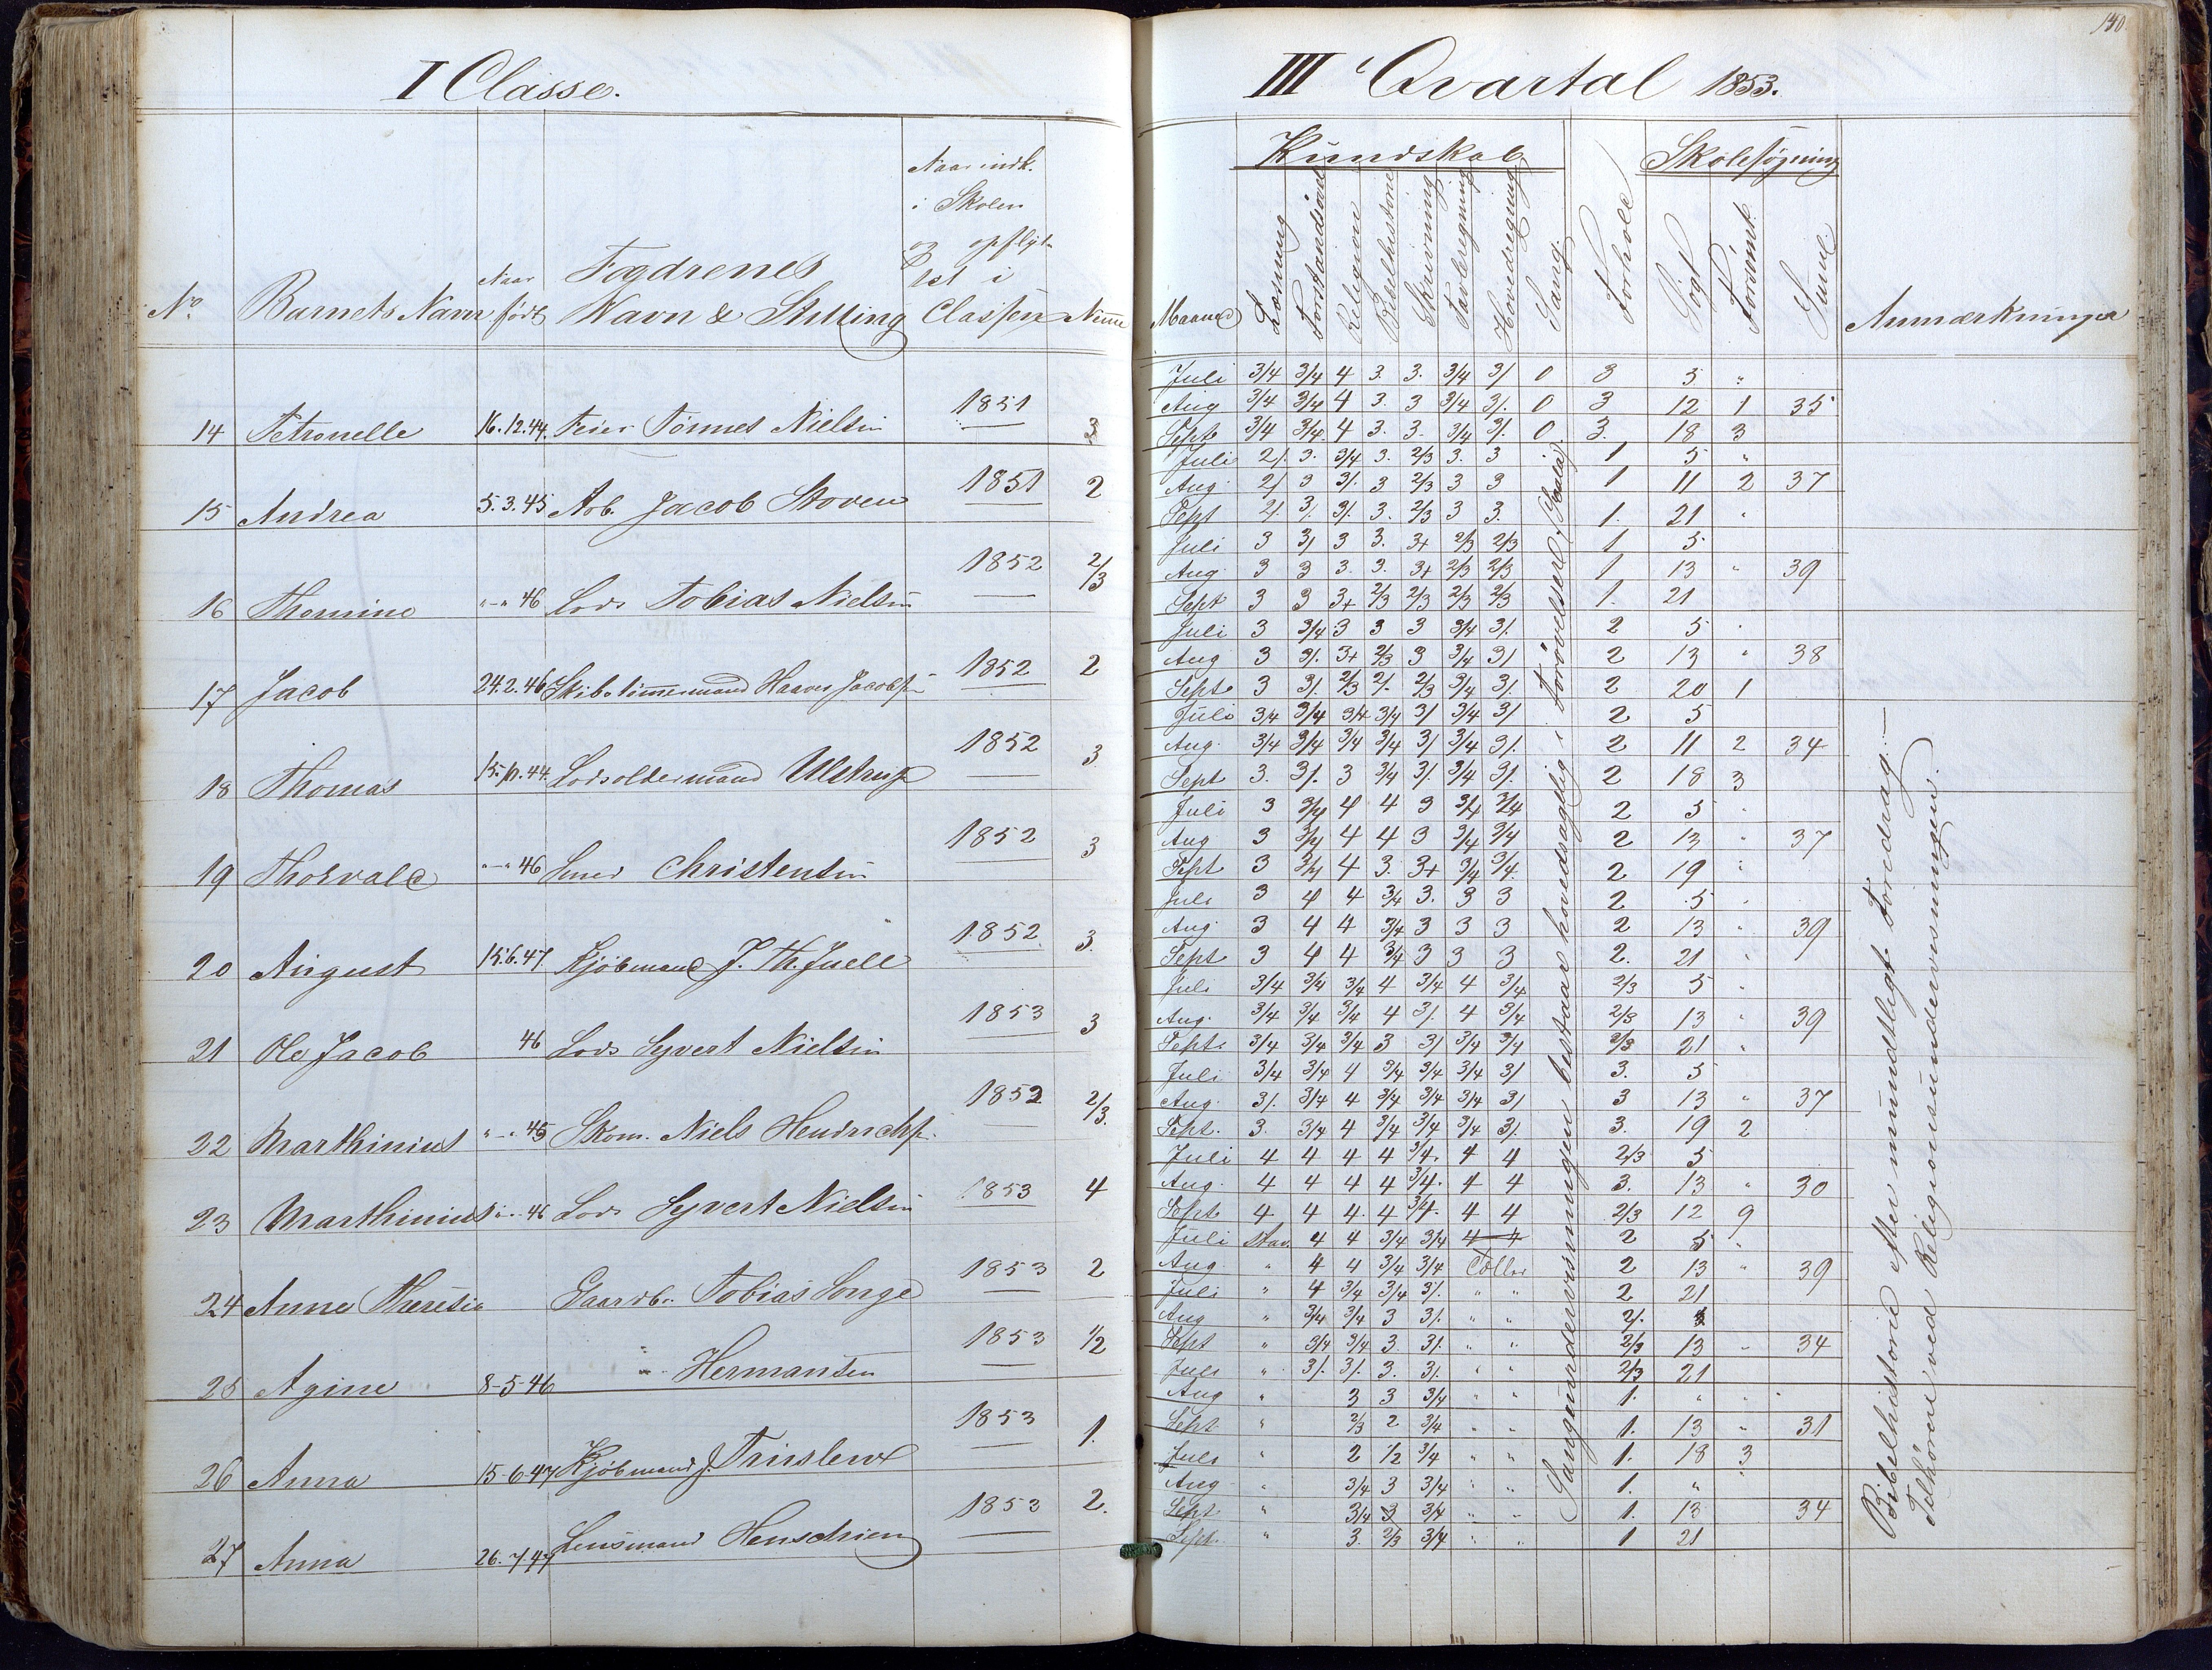 140.
I Classe.
III Qvartal 1853.
Kundskab
Skolesøgning
No
Barnets Navn
Naar født
Fædrenes Navn & Stilling
Naar indk. i Skolen og opflyttet i Classen
Maaned
Læsning
Forstandsøvel
Religion
Bibelhistorie
Skrivning
Tavleregning
Hovedregning
Sang.
Forhold
Søgt
Forsømt.
Sum.
Anmærkninger
14 Petronelle 16.12.44. Tønnes Nielsen 1851 3
Juli 3/4 3/4 4 3. 3. 3/4 3/ 0 3 5 "
Aug 3/4 3/4 4 3. 3 3/4 3/. 0 3 12 1 35
Sept 3/4 3/4 4 3. 3. 3/4 3/. 0 3. 18 3
15 Andrea 5.3.45 Arb. Jacob Stoven 1851 2
Juli 2/. 3. 3/4 3. 2/3 3. 3 1 5 "
Aug. 2/ 3 3/. 3 2/3 3 3 1 11 2 37
Sept 2/. 3/. 3/. 3. 2/3 3 3. 1. 21 "
16 Thomine "-" 46 Lods Tobias Nielsen 1852 2/3
Juli 3 3/ 3 3. 3+ 2/3 2/3 1 5
Aug. 3 3 3. 3. 3+ 2/3 2/3 1 13 " 39
Sept 3 3 3+ 2/3 2/3 2/3 2/3 1. 21
17 Jacob 24.2.46 Skibstimmermand Haaver Jacobsen 1852 2
Juli 3 3/4 3 3 3 3/4 3/. 2 5 "
Aug 3 3/. 3+ 2/3 3 3/4 3/ 2 13 " 38
Sept 3 3/. 2/3 2/. 2/3 3/4 3/. 2 20 1
18 Thomas 44. Lodsoldermand Ulstrup 1852 3
Juli 3/4 3/4 3/4 3/4 3/ 3/4 3/ 2 5
Aug. 3/4 3/4 3/4 3/4 3/ 3/4 3/. 2 11 2 34
Sept 3. 3/. 3 3/4 3/. 3/4 3/. 2 18 3
19 Thorvald "-" 46 Smed Christensen 1852 3
Juli 3 3/4 4 4 3 3/4 3/4 2 5 "
Aug 3 3/4 4 4 3 3/4 3/4 2 13 " 37
Sept 3 3/4 4 3. 3+ 3/4 3/4. 2 19 "
20 August 15.6.47 Kjøbmand J. Th. Juell 1852 3.
Juli 3 4 4 3/4 3. 3 3 2 5 "
Aug. 3 4 4 3/4 3 3 3 2 13 " 39
Sept 3 4 4 3/4 3 3 3 2. 21 "
21 Ole Jacob 46 Lods Syvert Nielsen 1853 3
Juli 3/4 3/4 3/4 4 3/4 4 3/4 2/3 5 "
Aug. 3/4 3/4 3/4 4 3/. 4 3/4 2/3 13 " 39
Sept. 3/4 3/4 3/4 3 3/ 3/4 3/4 2/3 21 "
22 Marthinius "-" 45 Skom. Niels Hendrichs. 1852 2/3.
Juli 3/4 3/4 4 3/4 3/4 3/4 3/ 3. 5
Aug. 3/. 3/4 4 3/4 3/4 3/4 3/ 3 13 " 37
Sept. 3. 3/4 4 3/4 3/4 3/4 3/. 3. 19 2
23 Marthinius "-" 46 Lods Syvert Nielsen 1853 4
Juli 4 4 4 4 3/4. 4 4 2/3 5
Aug. 4 4 4 4 3/4. 4 4 3. 13 " 30
Sept. 4 4 4. 4 3/4. 4 4 2/3 12 9
24 Anne Theresia Gaardbr. Tobias Songe 1853 2
Juli Stav. 4 4 3/4 3/4 4 4 2 5 "
Aug " 4 4 3/4 3/4 2 13 " 39
Juli " 4 3/4 3/4 3/. " " 2 21
25 Agine 8-5-46 " Hermansen 1853 1/2
Aug " 3/4 3/4 3 3/. " " 2/.
Sept " 3/4 3/4 3 3/. " " 2/3 13 " 34
Juli " 3/. 3/. 3. 3/. " " 2/3 21
26 Anna 15-6-47 Kjøbmand J. 1853 1.
Aug " 3 3 3/4 " " 1. " "
Sept " 2/3 2 3/4 " " 1. 13 " 31
Juli " 2 1/2 3/4 " " 1. 18 3
27 Anna 26.7 47 Lensmand Henschien 1853 2.
Aug " 3/4 3 3/4 " " 1. "
Sept " 3/4 3 3/4 " " 1. 13 34
Sept. " 3. 2/3 3/4 " " 1 21
Sangundervisningen bestaar hovedsaglig i Forøvelser (Scala).
Bibelhistorie efter mundtligt Foredrag.—
Tilhørere ved Religionsundervisningen.